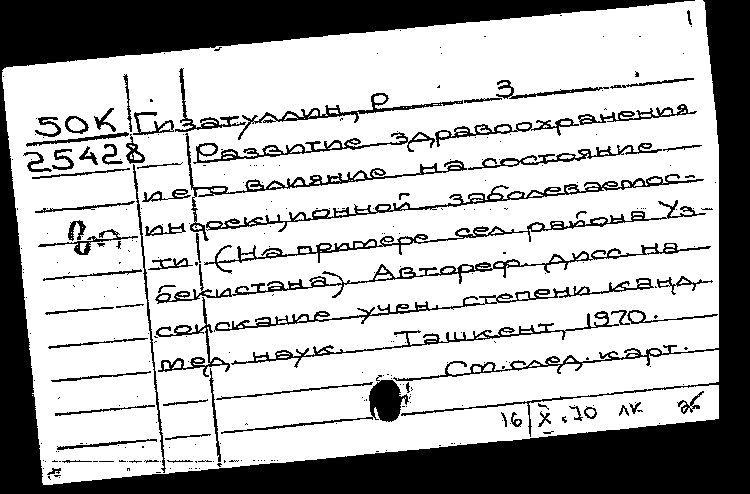 1
50К Гизатуллин, Р З
25428 Развитие здравоохранения
и его влияние на состояние
инфекционной заболеваемос-
ти. (На примере сел. района Уз-
бекистана). Автореф. дисс. на
соискание учен. степени канд.
мед. наук. Ташкент, 1970.
См. след. карт.
16/X.70 ЛК